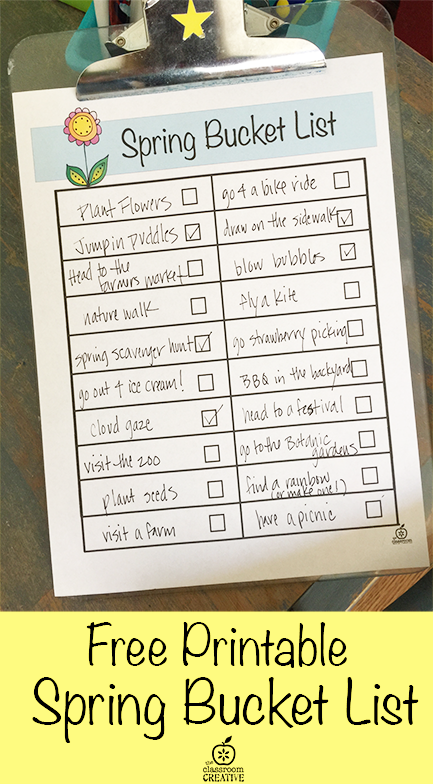 Spring Bucket List
Plant Flowers
go 4 a bike ride
Jump in puddles
draw on the sidewalk
Head to the
farmers market
blow bubbles
nature walk
fly a kite
spring scavenger hunt
go strawberry picking
go out 4 ice cream!
BBQ in the backyard
cloud gaze
head to a festival
visit the zoo
go to the Botanic
gardens
plant seeds
find a rainbow
(or make one!)
visit a farm
have a picnic
Free Printable
Spring Bucket List
the
classroom
CREATIVE